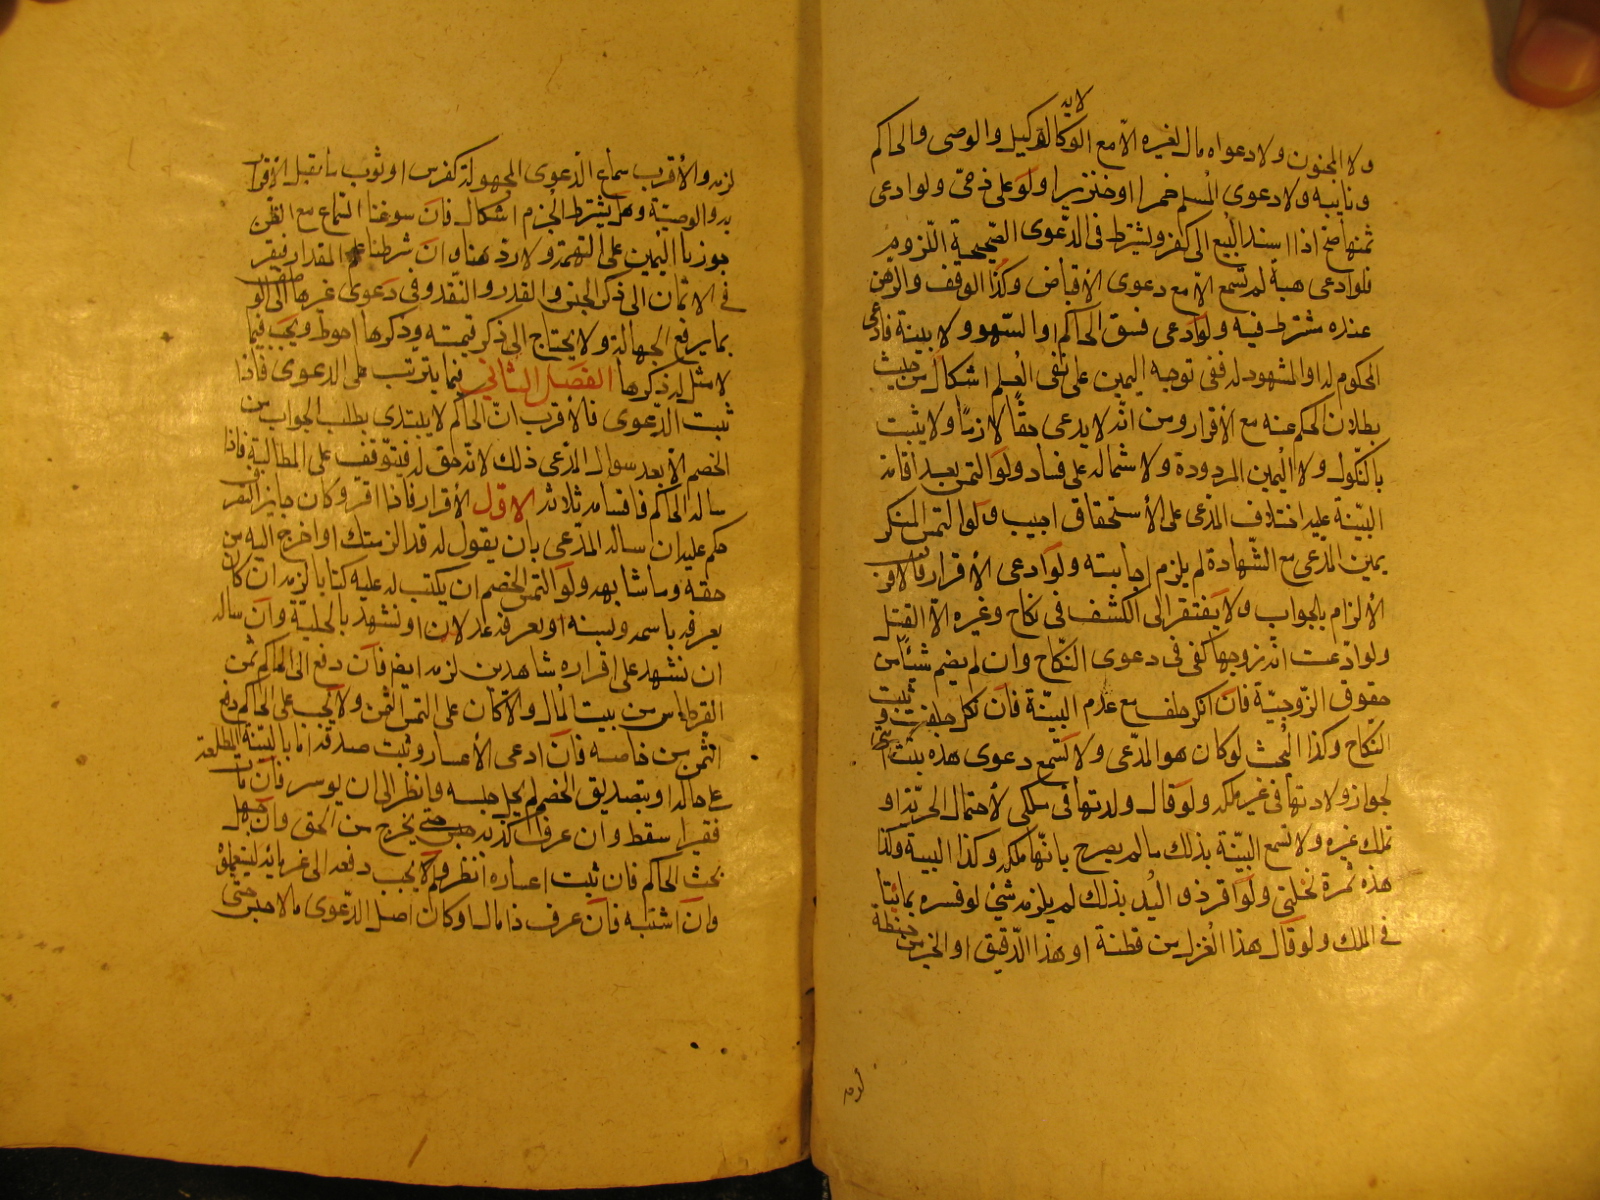 لابد
ولا المجنون ولا دعواه مال لغيره الا مع الوكالة كالوكيل والوصى والحاكم
ونايبه ولا دعوى المسلم خمرا او خنزيرا ولو على ذمى ولو ادعى
ثمنها صح اذا اسند البيع الى كفره ويشترط فى الدعوى الصحيحة اللزوم
فلو ادعى هبة لم تسمع الا مع دعوى الاقباض وكذا الوقف والرهن
عند مشترط فيه ولو ادعى فسق الحاكم او الشهود ولا بينة فادعى
المحكوم له او المشهود له ففى توجه اليمين على نفى العلم اشكال من حيث
بطلان الحكم عنه مع الاقرار ومن انه لا يدعى حقا لازما ولا يثبت
بالنكول ولا اليمين المردودة ولاشتماله على فساد ولو التمس بعد اقامة
البينة عليه اختلاف المدعى على الاستحقاق اجيب ولو التمس المنكر
يمين المدعى مع الشهادة لم يلزم اجابته ولو ادعى الاقرار فالاقرب
الالزام بالجواب ولا يفتقر الى الكشف فى نكاح وغيره الا القتل
ولو ادعت انه زوجها كفى فى دعوى النكاح وان لم يضم شيئا من
حقوق الزوجية فان انكر حلف مع عدم البينة فان نكل حلفت وثبت
النكاح وكذا البحث لو كان هو المدعى ولا تسمع دعوى هذه بنت امتى
لجواز ولادتها فى غير ملكه ولو قال ولدتها فى ملكى لاحتمال الحرية او
تملك غيره ولا تسمع البينة بذلك ما لم يصرح بانها ملكه وكذا البينة وكذا
هذه ثمرة نخلتى ولو اقر ذو اليد بذلك لم يلزمه شئ لو فسره بما ينافى
فى الملك ولو قال هذا الغزل من قطنه او هذا الدقيق او الخبز من حنطة
لزمه والاقرب سماع الدعوى المجهولة كفرس او ثوب ما يقبل الاقرار
به والوصية وهل يشترط الجزم اشكال فان سوغنا السماع مع الظن
جوزنا اليمين على التهمة ولا رد هنا وان شرطنا علم المقدار فيفتقر
فى الاثمان الى ذكر الجنس والقدر والنقد وفى دعوى غيرها الى الوصف
بما يرفع الجهالة ولا يحتاج الى ذكر قيمته وذكرها احوط ويجب فيما
لا مثل له ذكرها الفصل الثانى فيما يترتب على الدعوى فاذا
ثبت الدعوى فالاقرب ان الحاكم لا يبتدى بطلب الجواب من
الخصم الا بعد سوال المدعى ذلك لانه حق له فيتوقف على المطالبة فاذا
ساله الحاكم فاقسامه ثلاثة الاول الاقرار فاذا اقر وكان جايز التصرف
حكم عليه ان ساله المدعى بان يقول له قد الزمتك او اخرج اليه من
حقه وما شابهه ولو التمس الخصم ان يكتب له عليه كتابا لزمه ان كان
يعرفه باسمه ونسبه او يعرفه عدلان او تشهد بالحلية وان ساله
ان نشهد على اقراره شاهدين لزمه ايضا فان دفع الى الحاكم ثمن
القرطاس من بيت المال والا كان على الملتمس الثمن ولا يجب على الحاكم دفع
الثمن من خاصه فان ادعى الاعسار وثبت صدقه اما بالبينة المطلعة
على حاله او بتصديق الخصم لم يحل حبسه وانظر الى ان يوسر فان مات
فقيرا سقط وان عرف كذبه حبس حتى يخرج من الحق وان جهل
بحث الحاكم فان ثبت اعساره انظر ولا يجب دفعه الى غرمائه ليستعملوه
وان اشتبه فان عرف ذا مال او كان اصل الدعوى مالا حبس حتى